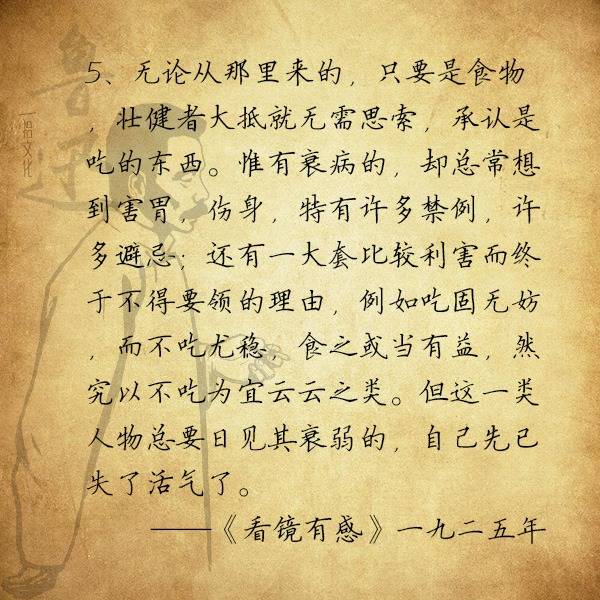 鲁迅
拾文化
5、无论从那里来的，只要是食物
，壮健者大抵就无需思索，承认是
吃的东西。惟有衰病的，却总常想
到害胃，伤身，特有许多禁例，许
多避忌；还有一大套比较利害而终
于不得要领的理由，例如吃固无妨
，而不吃尤稳，食之或当有益，然
究以不吃为宜云云之类。但这一类
人物总要日见其衰弱的，自己先已
失了活气了。
——《看镜有感》一九二五年